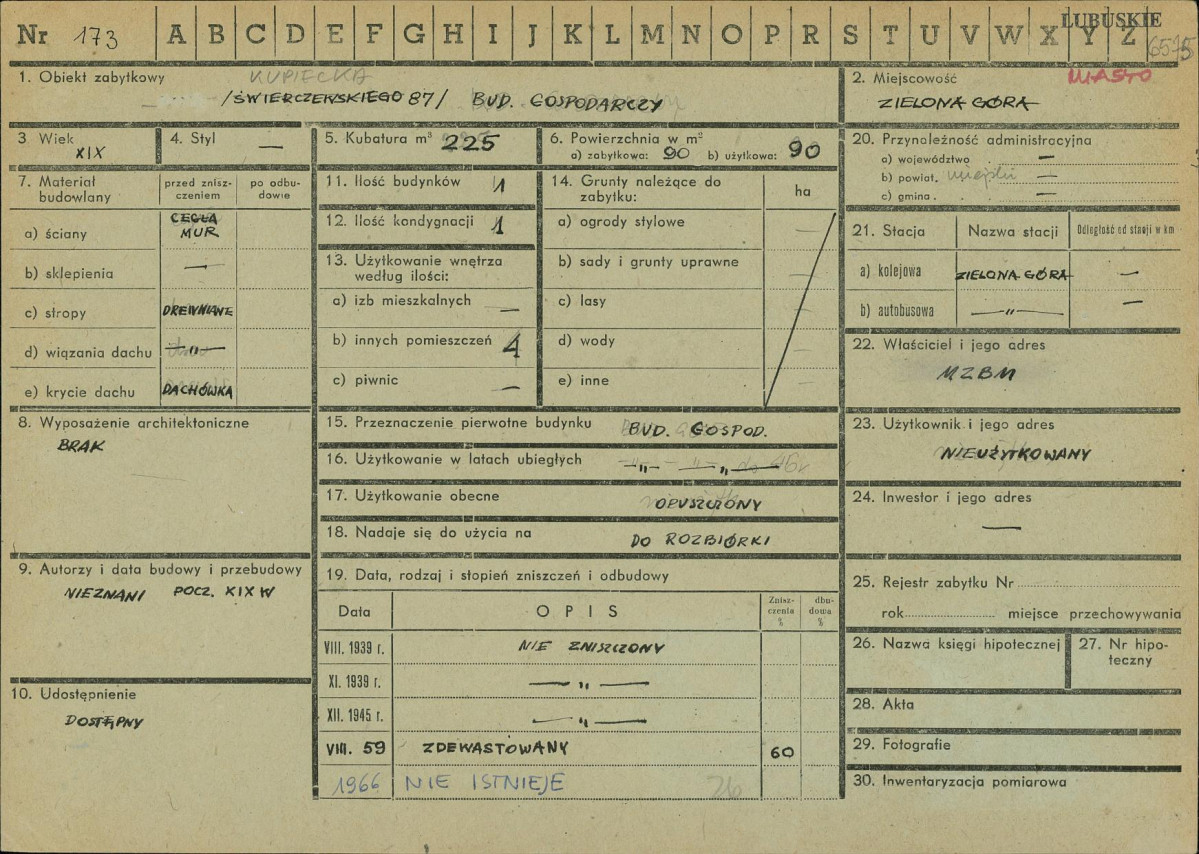 Nr 173 A B C D E F G H I J K L M N O P R S T U V W X Y Z LUBUSKIE 6575
1. Obiekt zabytkowy KUPIECKA
/ŚWIERCZEWSKIEGO 87/ BUD. GOSPODARCZY
2. Miejscowość MIASTO
ZIELONA GÓRA
3. Wiek XIX
4. Styl —
5. Kubatura m³ 225
6. Powierzchnia w m²
a) zabytkowa: 90 b) użytkowa: 90
7. Materiał budowlany
przed zniszczeniem
po odbudowie
a) ściany CEGŁA
MUR
b) sklepienia —
c) stropy DREWNIANE
d) wiązania dachu —"—
e) krycie dachu DACHÓWKA
8. Wyposażenie architektoniczne
BRAK
9. Autorzy i data budowy i przebudowy
NIEZNANI POCZ. XIX W
10. Udostępnienie
DOSTĘPNY
11. Ilość budynków 1
12. Ilość kondygnacji 1
13. Użytkowanie wnętrza
według ilości:
a) izb mieszkalnych —
b) innych pomieszczeń 4
c) piwnic —
14. Grunty należące do
zabytku:
ha
a) ogrody stylowe —
b) sady i grunty uprawne —
c) lasy —
d) wody —
e) inne
15. Przeznaczenie pierwotne budynku BUD. GOSPOD.
16. Użytkowanie w latach ubiegłych —"— —"—
17. Użytkowanie obecne OPUSZCZONY
18. Nadaje się do użycia na DO ROZBIÓRKI
19. Data, rodzaj i stopień zniszczeń i odbudowy
Data OPIS Zniszczenia % dbudowa %
VIII. 1939 r. NIE ZNISZCZONY
XI. 1939 r. —"—
XII. 1945 r. —"—
VIII. 59 ZDEWASTOWANY 60
1966 NIE ISTNIEJE
20. Przynależność administracyjna
a) województwo . —
b) powiat. miejski —
c) gmina . —
21. Stacja Nazwa stacji Odległość od stacji w km
a) kolejowa ZIELONA GÓRA —
b) autobusowa —"— —
22. Właściciel i jego adres
MZBM
23. Użytkownik i jego adres
NIEUŻYTKOWANY
24. Inwestor i jego adres
—
25. Rejestr zabytku Nr
rok miejsce przechowywania
26. Nazwa księgi hipotecznej
27. Nr hipoteczny
28. Akta
29. Fotografie
30. Inwentaryzacja pomiarowa